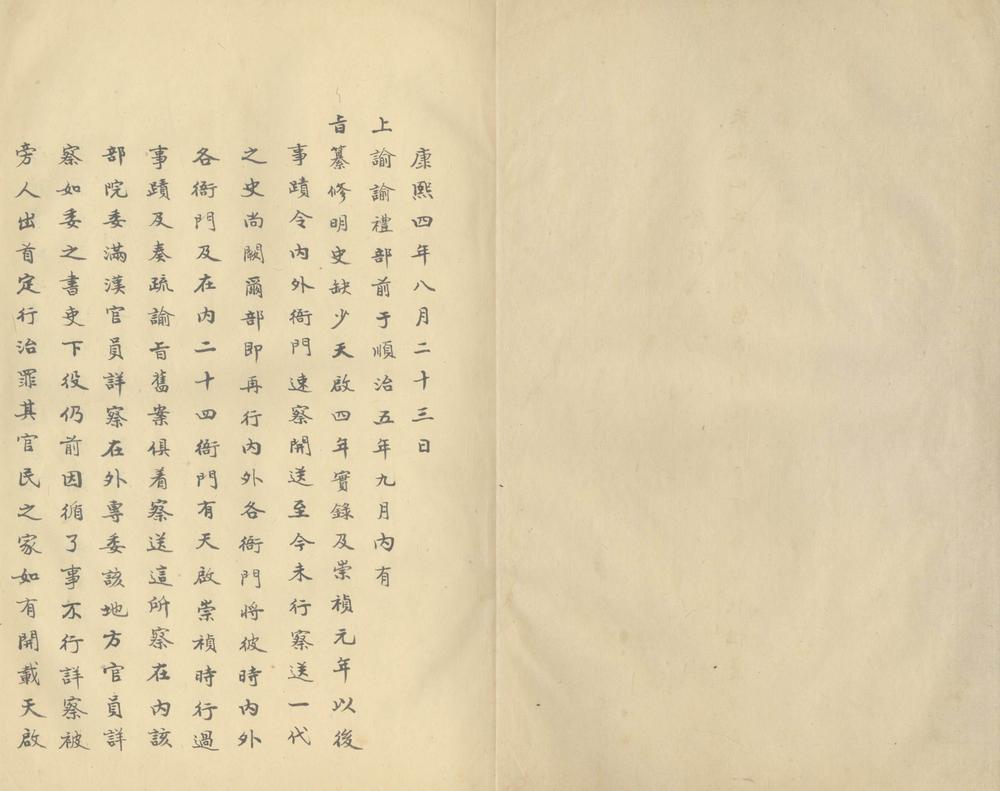 康熙四年八月二十三日
上諭諭禮部前于順治五年九月內有
旨纂修明史缺少天啟四年實錄及崇禎元年以後
事蹟令內外衙門速察開送至今未行察送一代
之史尚闕爾部即再行內外各衙門將彼時內外
各衙門及在內二十四衙門有天啟崇禎時行過
事蹟及奏疏諭旨舊案俱着察送這所察在內該
部院委滿漢官員詳察在外專委該地方官員詳
察如委之書吏下役仍前因循了事不行詳察被
旁人出首定行治罪其官民之家如有開載天啟